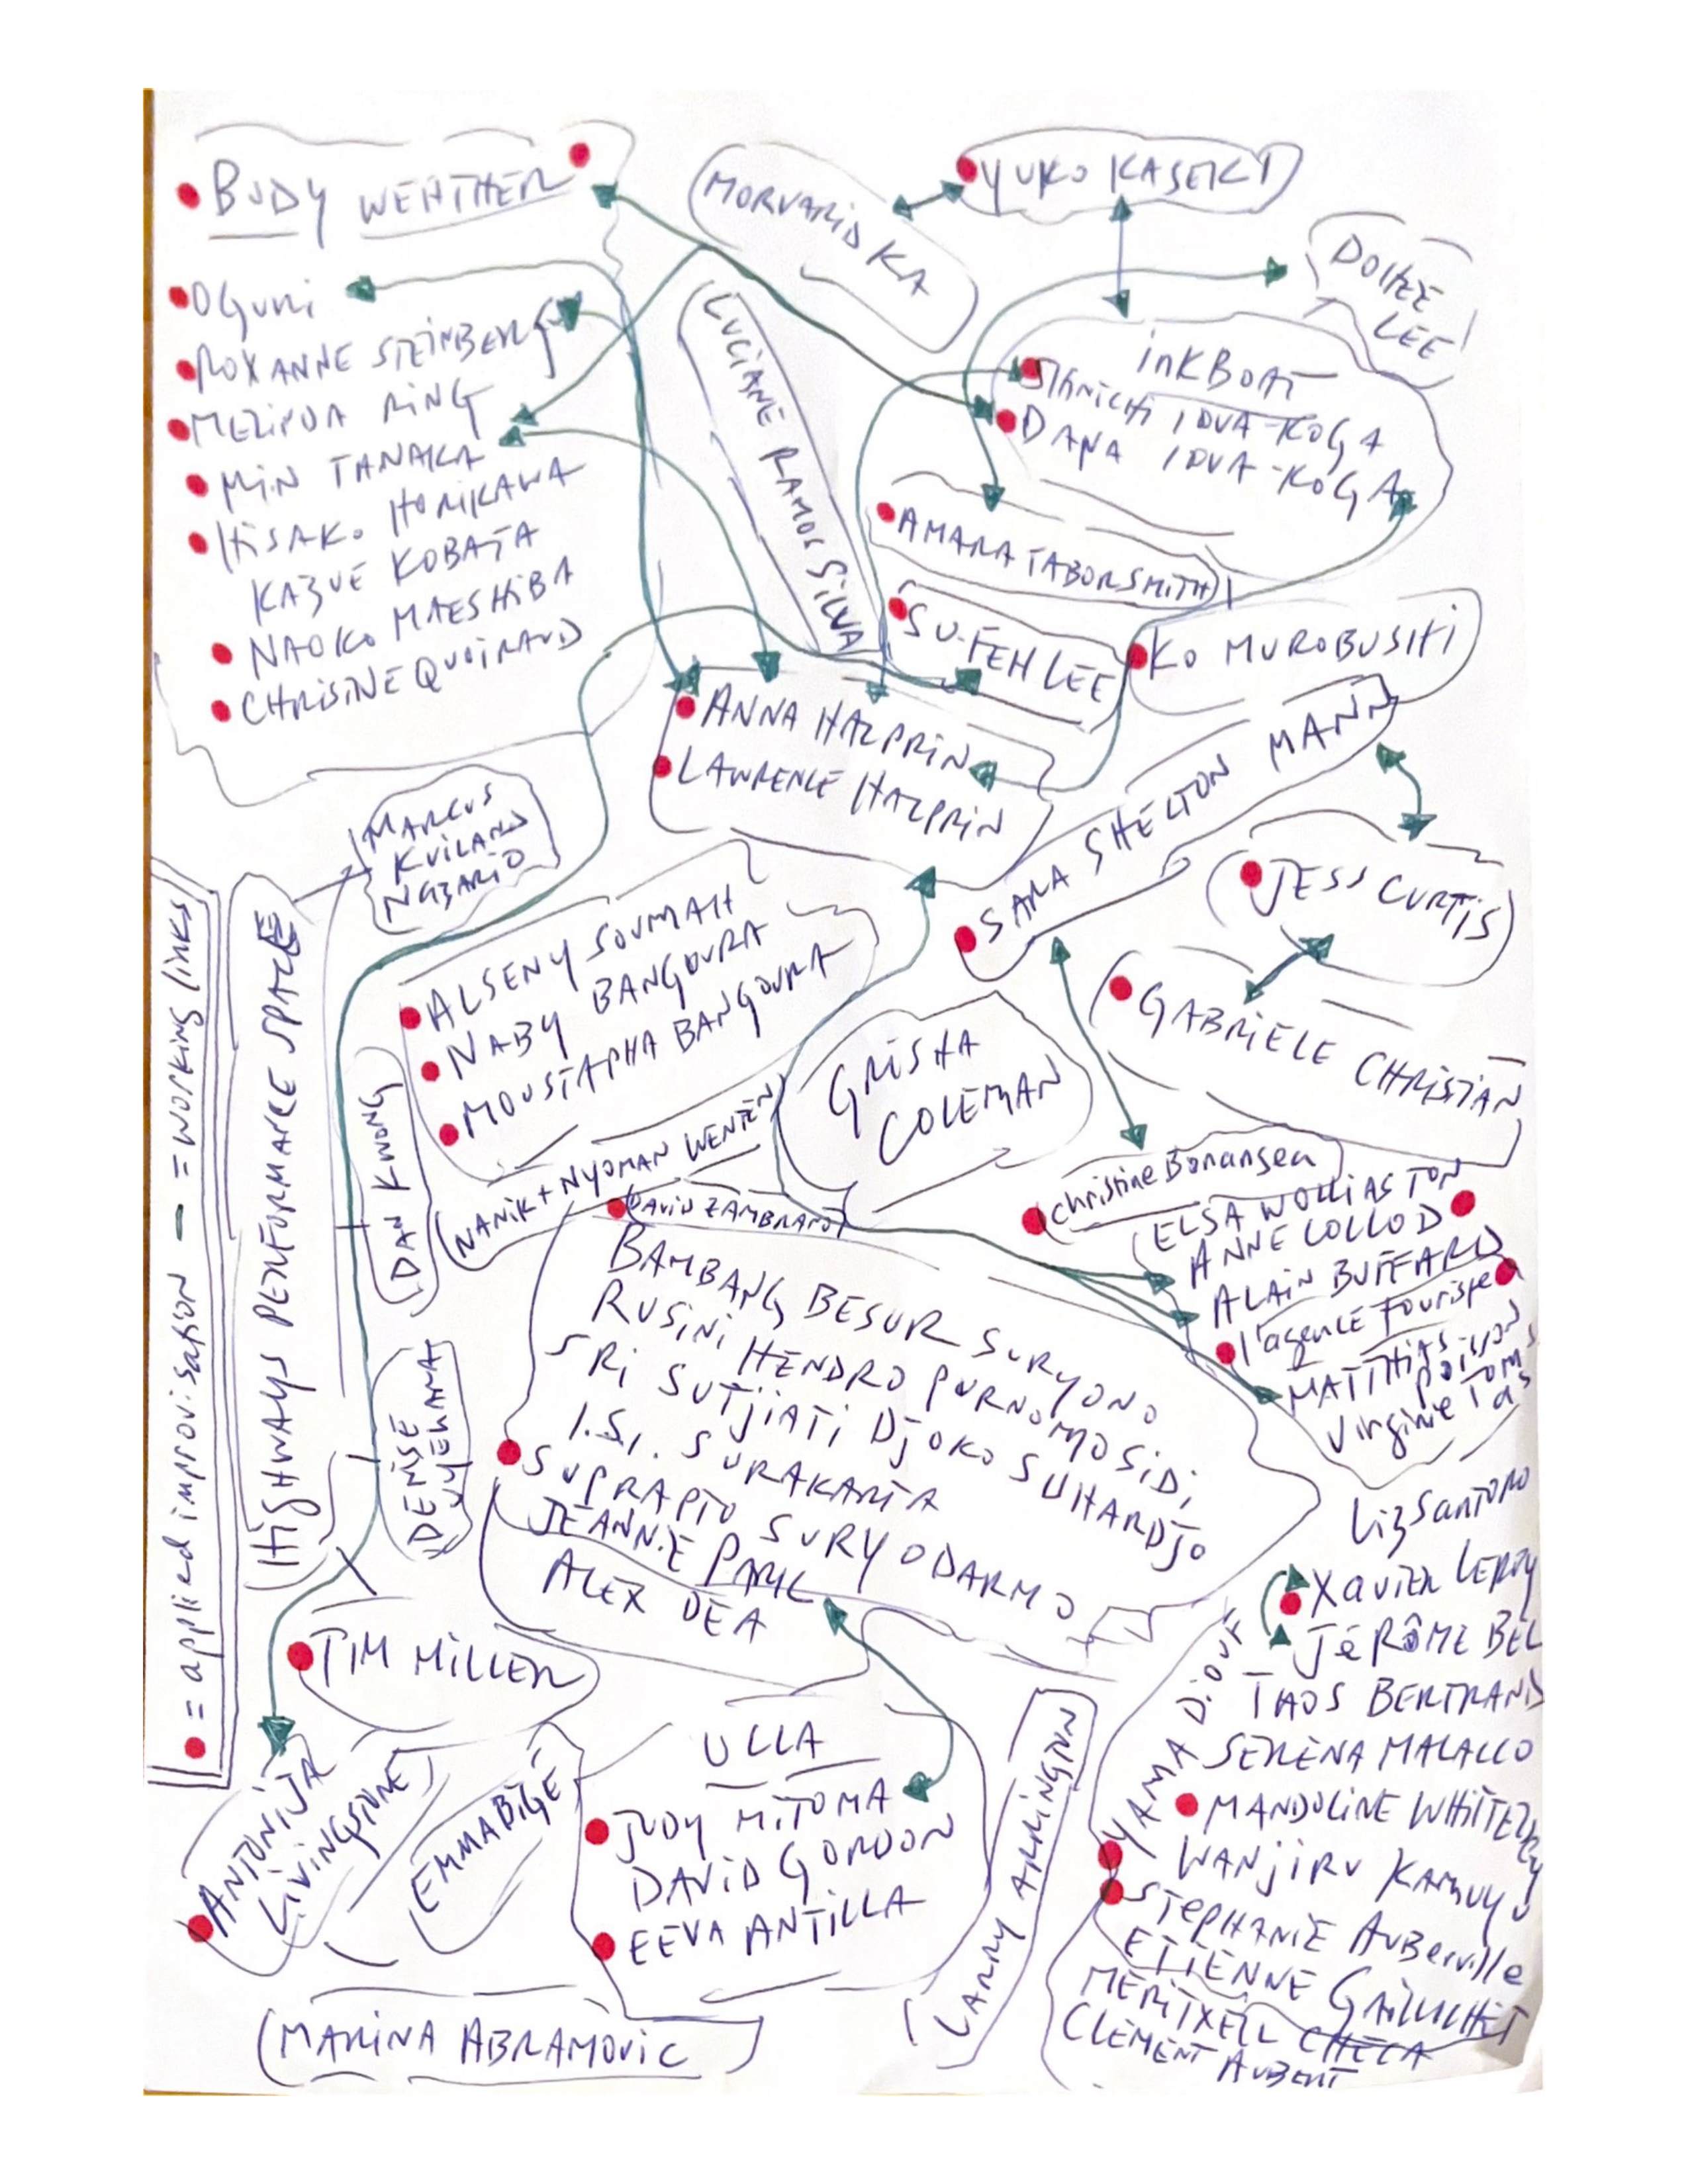 BODY WEATHER
OGURI
ROXANNE STEINBERG
MELINDA RING
MIN TANAKA
HISAKO HORIKAWA
KAZUE KOBATA
NAOKO MAESHIBA
CHRISTINE QUOIRAUD
MORVARID KA
YUKO KASEKI
DOHEE
LEE
LUCIANE RAMOS SILVA
INKBOAT
SHINICHI IOVA-KOGA
DANA IOVA-KOGA
AMARA TABORSMITH
SU-FEH LEE
KO MUROBUSHI
ANNA HALPRIN
LAWRENCE HALPRIN
SARA SHELTON MANN
JESS CURTIS
GABRIELE CHRISTIAN
MARCUS
KUILAND
NAZARIO
= applied improvisation — = working links
HIGHWAYS PERFORMANCE SPACE
ALSENY SOUMAH
NABY BANGOURA
MOUSTAPHA BANGOURA
DAN KWONG
NANIK + NYOMAN WENTEN
GRISHA
COLEMAN
DAVID ZAMBRANO
Christine Bonansea
ELSA WOLLIASTON
ANNE COLLOD
ALAIN BUFFARD
l'agence touriste
MATTHIAS
poisson
Virginie
DENISE
UYEHARA
BAMBANG BESUR SURYONO
RUSINI HENDRO PURNOMOSIDI
SRI SUTJIATI DJOKO SUHARDJO
I.S.I. SURAKARTA
SUPRAPTO SURYODARMO
JEANNIE PARK
ALEX DEA
Liz Santoro
Xavier LEROY
JéRôME BEL
TAOS BERTRAND
SERENA MALACCO
MANDOLINE WHITTLESEY
WANJIRU KAMUYU
YAMA DIOUF
STEPHANIE AUBERVILLE
ETIENNE
MERITXELL CHECA
CLEMENT AUBERT
TIM MILLER
ANTONIJA
LIVINGSTONE
EMMA BIGÉ
UCLA
JUDY MITOMA
DAVID GORDON
EEVA ANTILLA
LARRY ARRINGTON
MARINA ABRAMOVIC